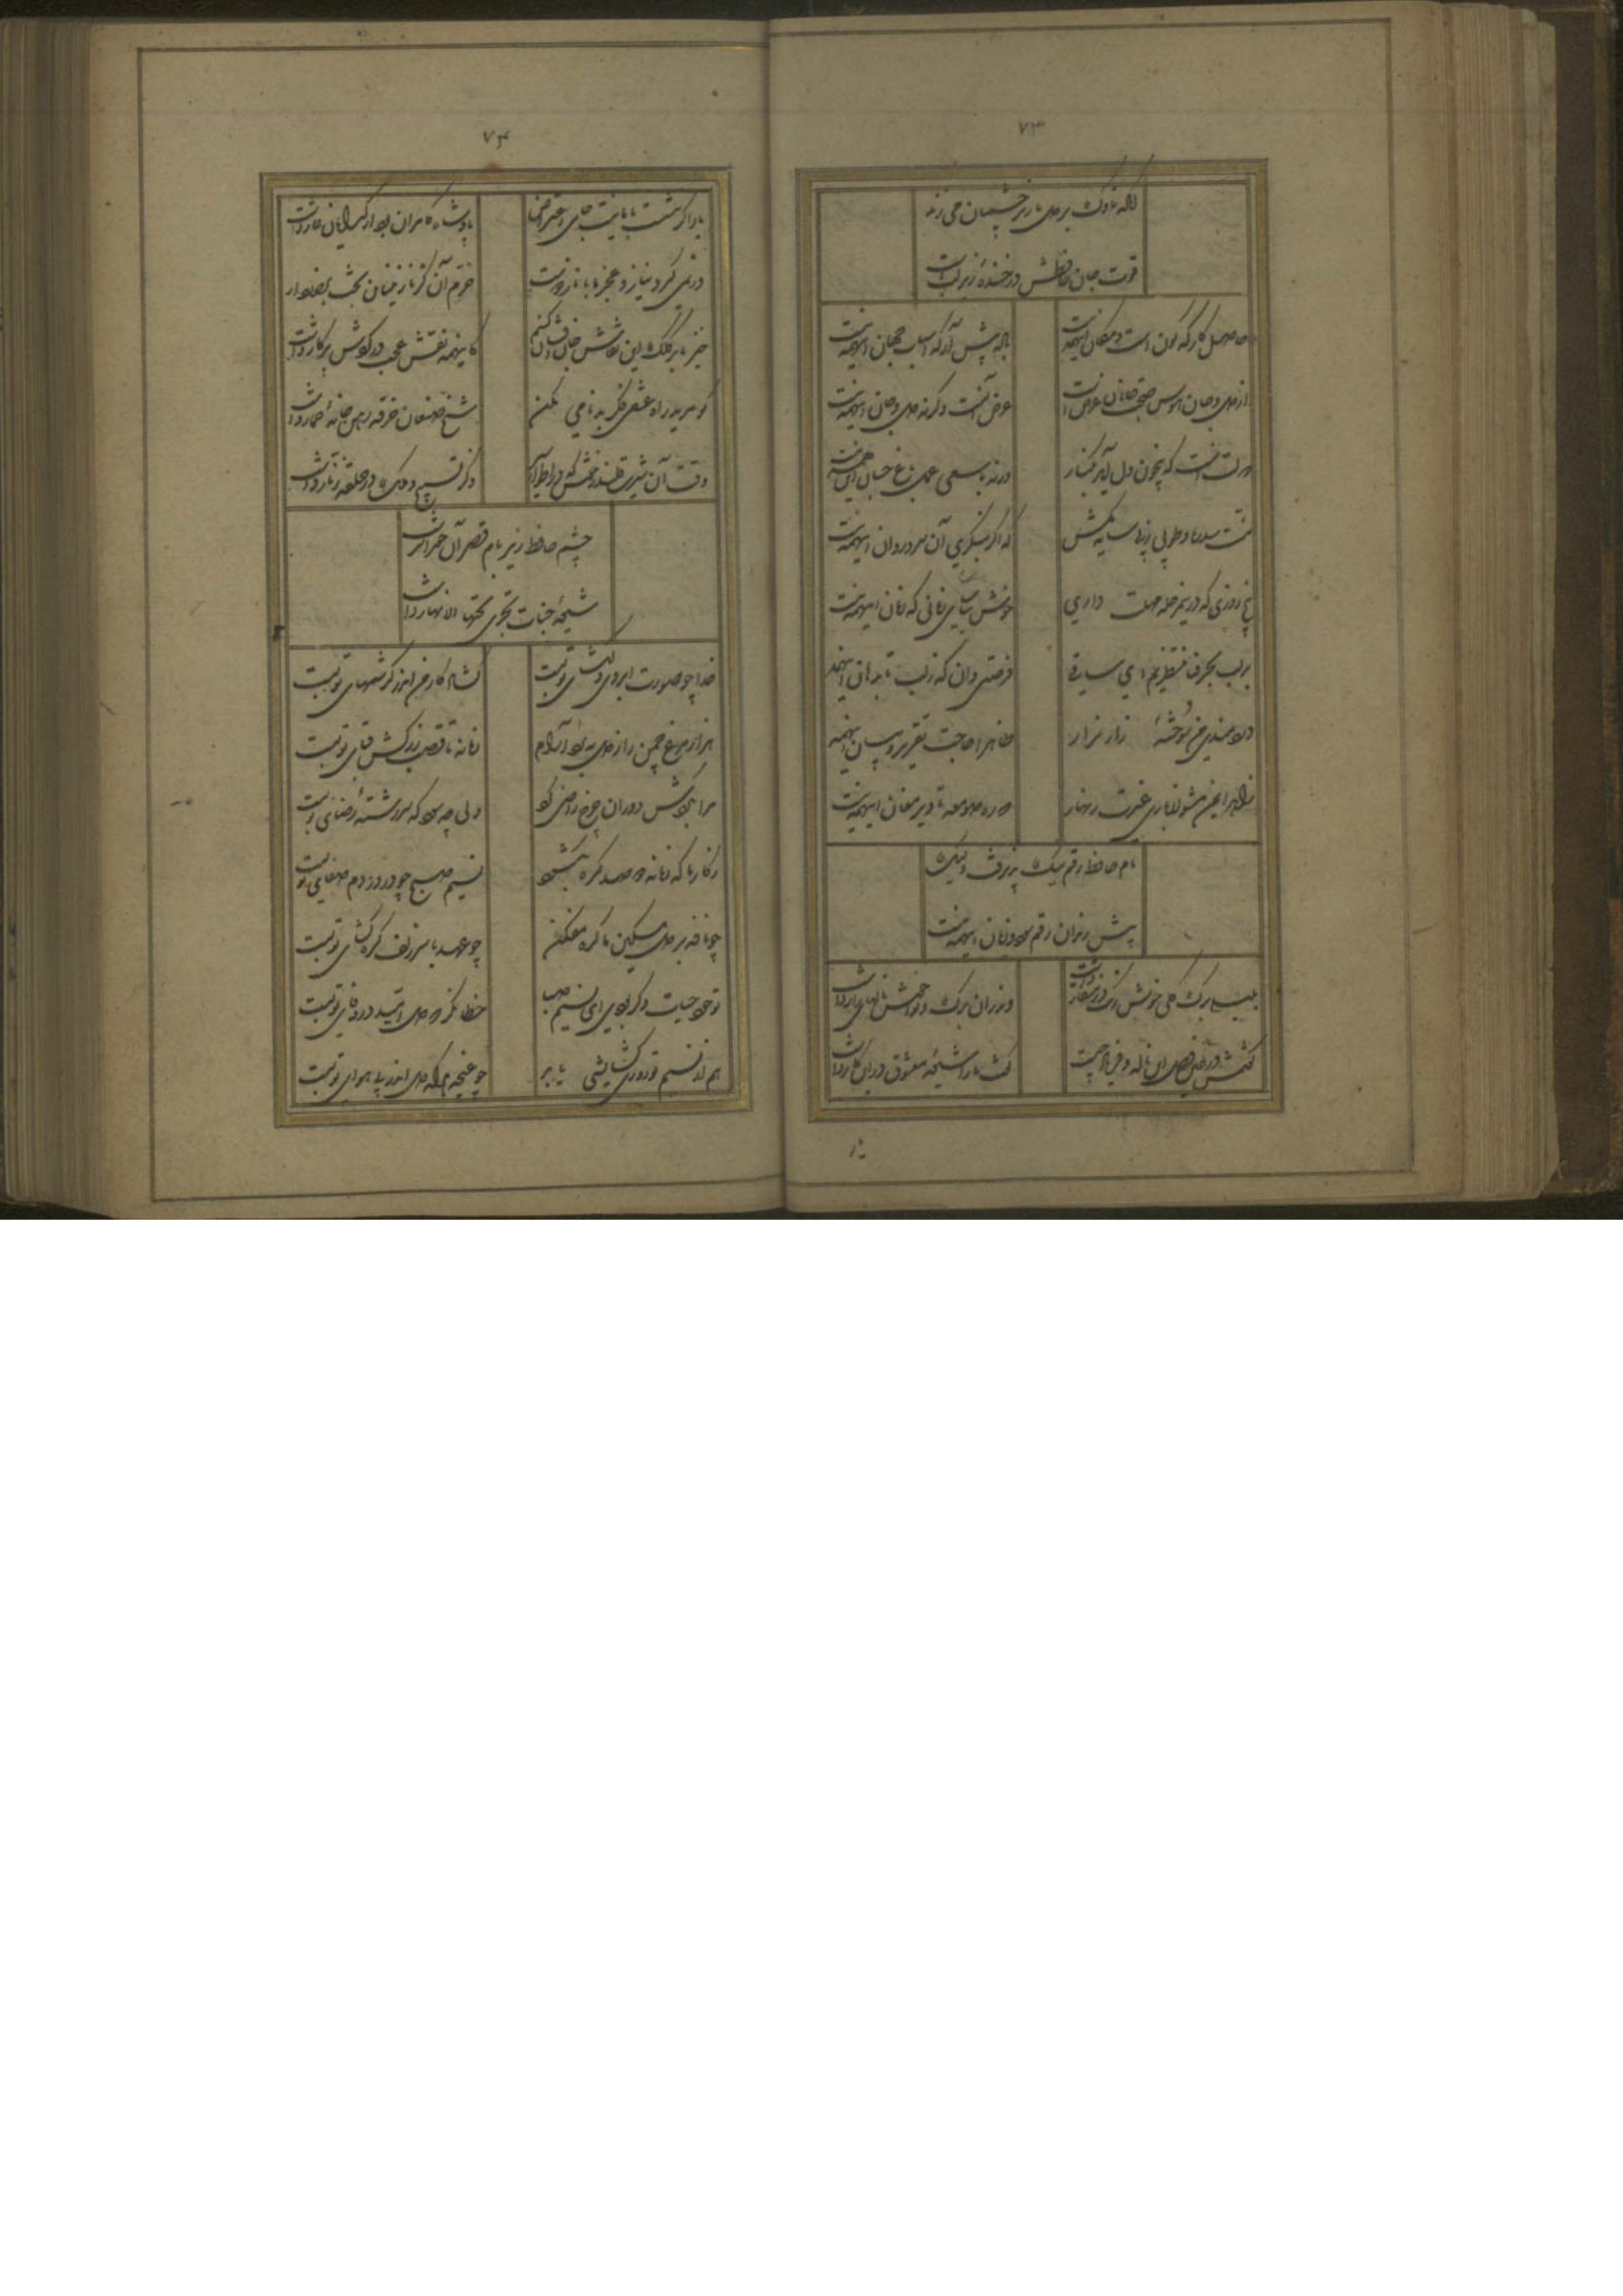 ۷۳
آنکه ناوک بر دل ما زیر چشمان می زند
قوت جان حافظش در خنده زیر لب است
حاصل کارگه کون و مکان اینهمه نیست
باده پیش آر که اسباب جهان اینهمه نیست
از دل و جان هوس صحبت جانان غرض است
غرض آنست وگرنه دل و جان اینهمه نیست
دولت آنست که بیخون دل آید بکنار
ورنه با سعی عمل باغ جنان اینهمه نیست
منت سدره و طوبی ز پی سایه مکش
که اگر بنگری آن سرو روان اینهمه نیست
پنج روزی که درین مرحله مهلت داری
خوش بیاسای زمانی که زمان اینهمه نیست
بر لب بحر فنا منتظریم ای ساقی
فرصتی دان که ز لب تا بدهان اینهمه
دردمندی من سوخته زار نزار
ظاهرا حاجت تقریر و بیان اینهمه
زاهد ایمن مشو از بازی غیرت زنهار
که ره صومعه تا دیر مغان اینهمه نیست
نام حافظ رقم نیک پذیرفت ولیک
پیش رندان رقم سود و زیان اینهمه نیست
بلبلی برگ گلی خوش رنگ در منقار داشت
و اندران برگ و نوا خوش نالهای زار داشت
گفتمش در عین وصل این ناله و فریاد چیست
گفت ما را شیوه معشوق در این کار داشت
یار
۷۴
یار اگر ننشست با ما نیست جای اعتراض
پادشاه کامران بود از گدایان عار داشت
در نمی گیرد نیاز و عجز ما با ناز دوست
خرم آن کز نازنینان بخت برخوردار
خیز تا بر کلک این نقاش جان افشان کنیم
کاینهمه نقش عجب در گردش پرگار داشت
گر مرید راه عشقی فکر بدنامی مکن
شیخ صنعان خرقه رهن خانه خمار داشت
وقت آن شیرین قلندر خوش که در اطوار
ذکر تسبیح و ملک در حلقه زنار داشت
چشم حافظ زیر بام قصر آن
شیوه جنات تجری تحتها الانهار داشت
خدا چو صورت ابروی دلگشای تو بست
گشاد کار من اندر کرشمهای تو بست
هزار مرغ چمن را ز دل ببرد آرام
زمانه تا قصب زرکش قبای تو بست
مرا بگردش دوران چرخ راضی کرد
ولی چه سود که سررشته رضای تو بست
ز کار ما که زمانه دو صد گره بگشود
نسیم صبح چو در دم صفای تو بست
چو نافه بر دل مسکین ما گره مفکن
چو عهد با سر زلف گره گشای تو بست
تو خود حیات دگر بودی ای نسیم صبا
خطا نگر که دل امید در وفای تو بست
هم از نسیم تو روزی گشایشی یابد
چو غنچه هر که دل اندر پی هوای تو بست